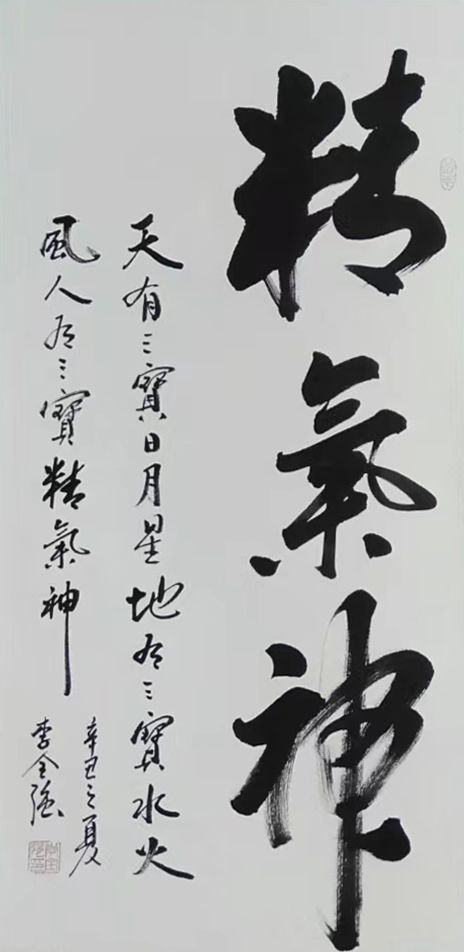 精氣神
天有三寶日月星地有三寶水火
風人有三寶精氣神
辛丑之夏
李全強